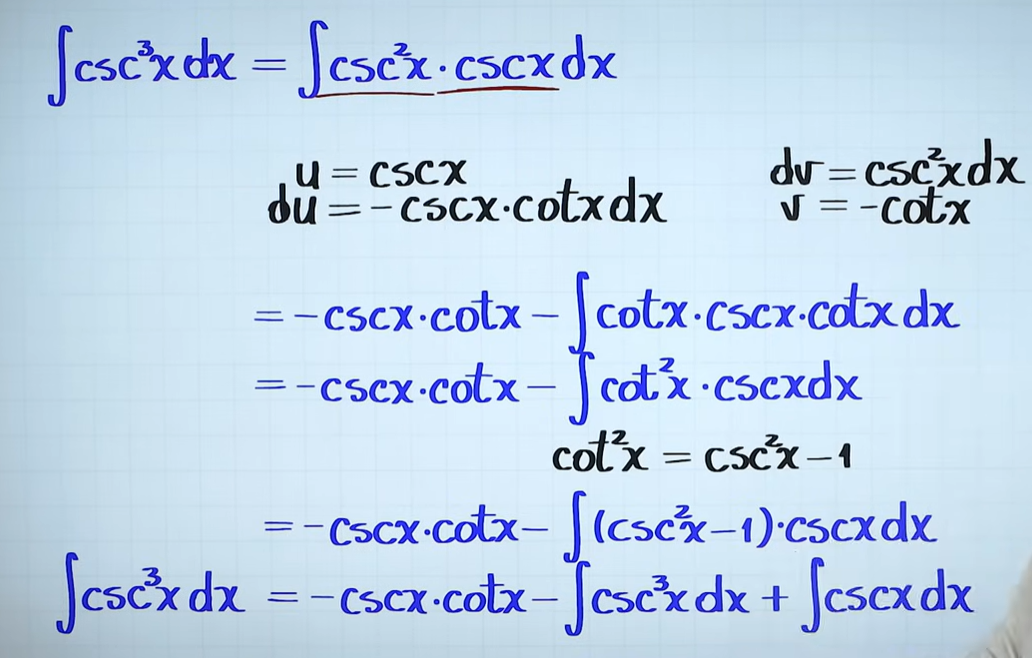 ∫csc³x dx = ∫csc²x · cscx dx
u = cscx dv = csc²x dx
du = -cscx·cotx dx v = -cotx
= -cscx·cotx - ∫cotx·cscx·cotx dx
= -cscx·cotx - ∫cot²x · cscxdx
cot²x = csc²x - 1
= -cscx·cotx - ∫(csc²x - 1)·cscx dx
∫csc³x dx = -cscx·cotx - ∫csc³x dx + ∫cscx dx